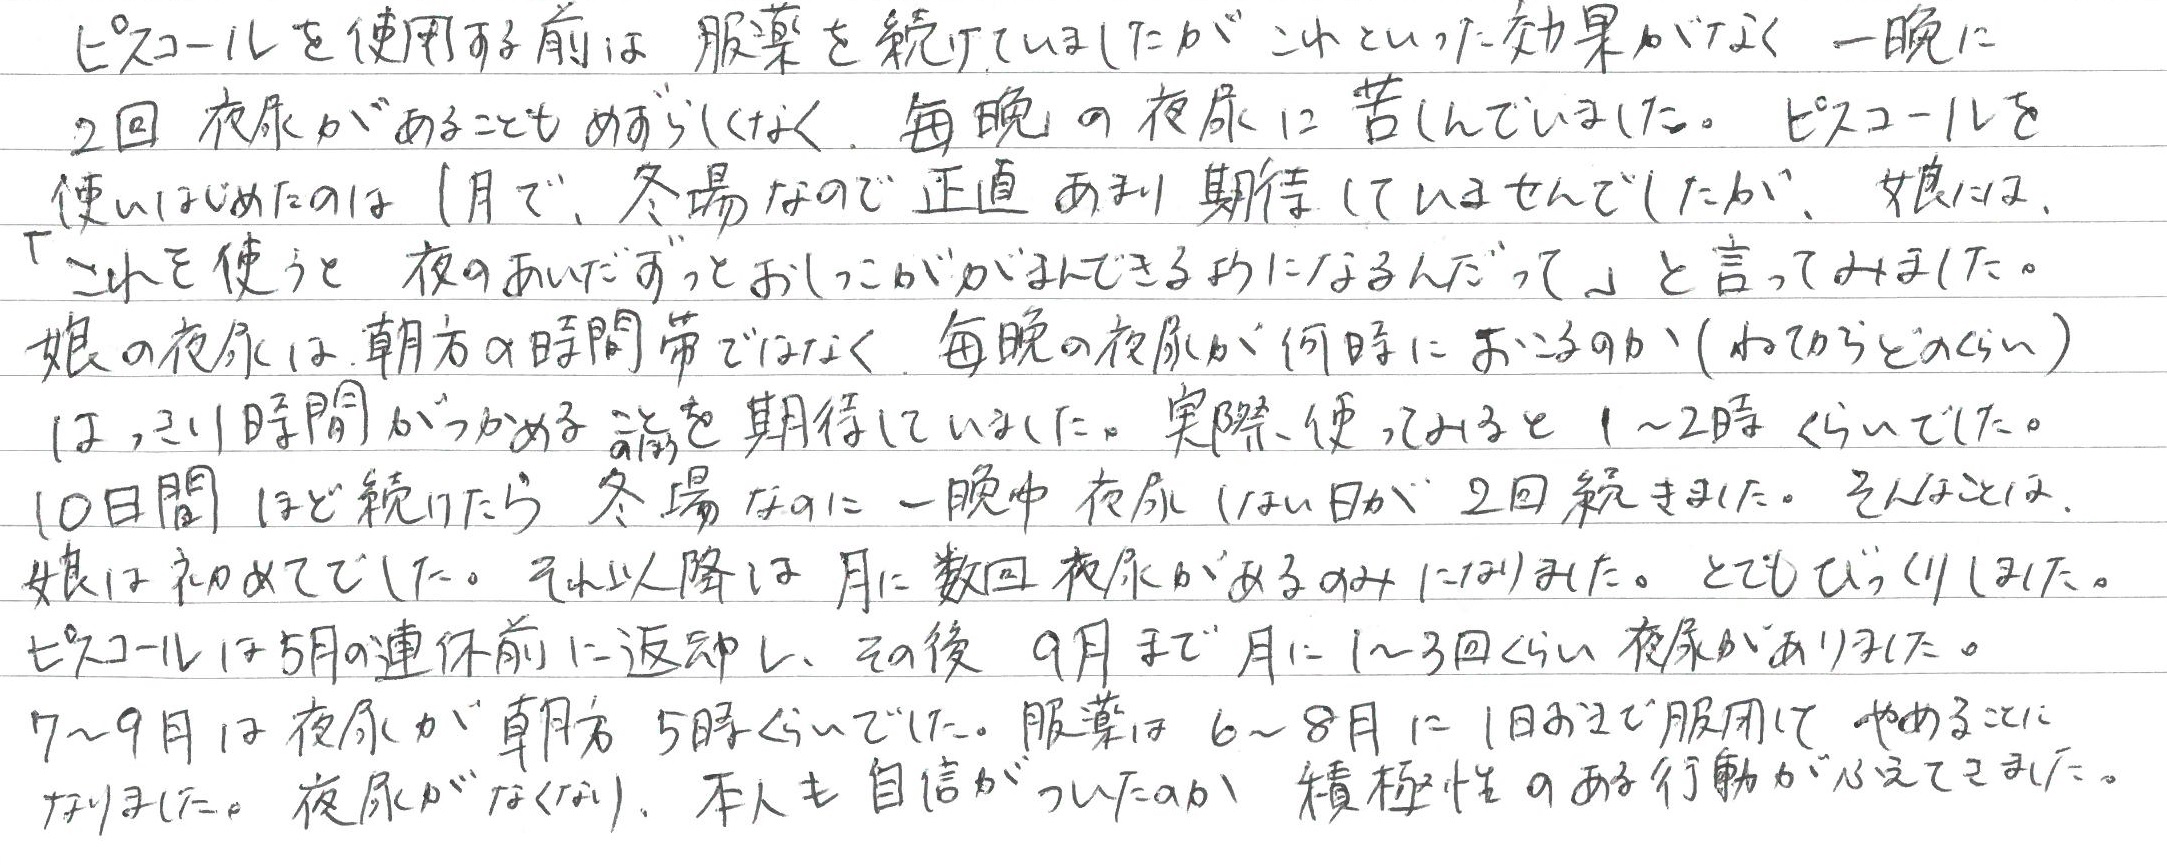 ピスコールを使用する前は 服薬を続けていましたが これといった効果がなく 一晩に
2回 夜尿があることもめずらしくなく、毎晩の夜尿に苦しんでいました。 ピスコールを
使いはじめたのは1月で、冬場なので正直あまり期待していませんでしたが、 娘には、
「これを使うと 夜のあいだずっとおしっこががまんできるようになるんだって」と言ってみました。
娘の夜尿は、朝方の時間帯ではなく、毎晩の夜尿が何時におこるのか(ねてからどのくらい)
はっきり時間がつかめることのほうを期待していました。実際、使ってみると 1〜2時くらいでした。
10日間ほど続けたら 冬場なのに一晩中夜尿しない日が2回続きました。そんなことは、
娘は初めてでした。それ以降は 月に数回夜尿があるのみになりました。とてもびっくりしました。
ピスコールは5月の連休前に返却し、その後 9月まで月に1〜3回くらい夜尿がありました。
7〜9月は夜尿が朝方5時くらいでした。服薬は6〜8月に1日おきで服用してやめることに
なりました。夜尿がなくなり、本人も自信がついたのか 積極性のある行動がふえてきました。